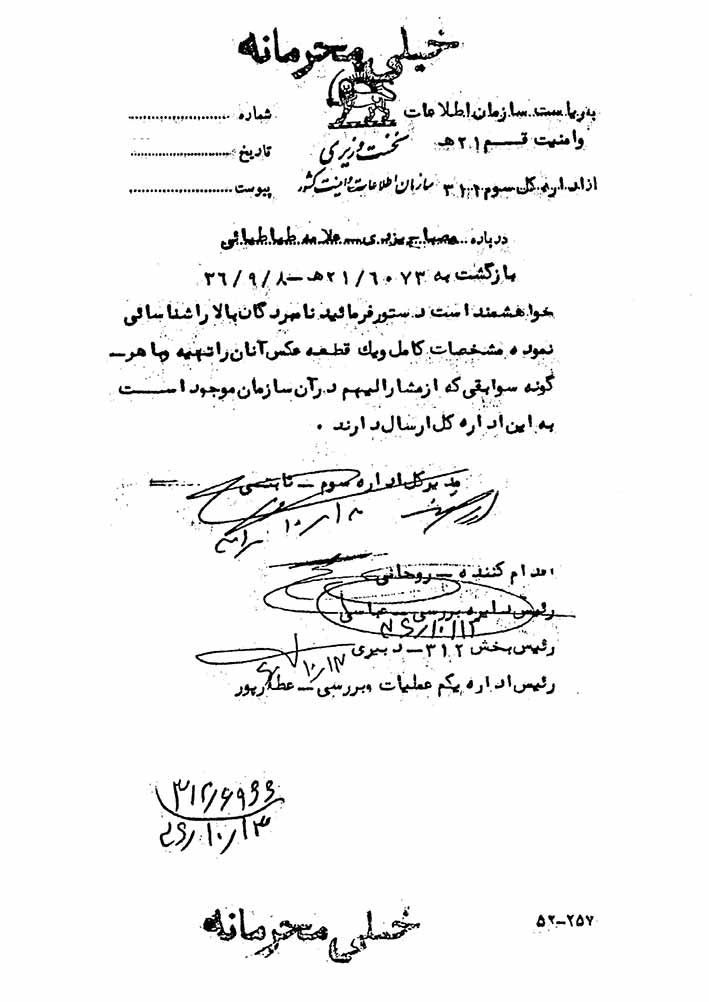 خیلی محرمانه
به ریاست سازمان اطلاعات
شماره
وامنیت قسم ۲۱هـ
نخست وزیری
تاریخ
از اداره کل سوم ۳۱۲
سازمان اطلاعات و امنیت کشور
پیوست
درباره مصباح یزدی ـ علامه طباطبائی
بازگشت به ۲۱/۶۰۷۳هـ ـ ۳۶/۹/۸
خواهشمند است دستور فرمائید نامبردگان بالا را شناسائی
نموده مشخصات کامل ویك قطعه عکس آنان را تهیه وبا هر ـ
گونه سوابقی که از مشارالیهم در آن سازمان موجود است
به این اداره کل ارسال دارند .
مدیرکل اداره سوم ـ ثابتی
۱۰/۱۲
اقدام کننده ـ روحانی
رئیس دایره بررسی ـ عباسی
۱۰/۱۳
رئیس بخش ۳۱۲ ـ دبیری
۱۰/۱۳
رئیس اداره یکم عملیات وبررسی ـ عطارپور
۳۱۲/۶۹۶۶
۳۶/۱۰/۱۳
خیلی محرمانه
۵۲-۲۵۷